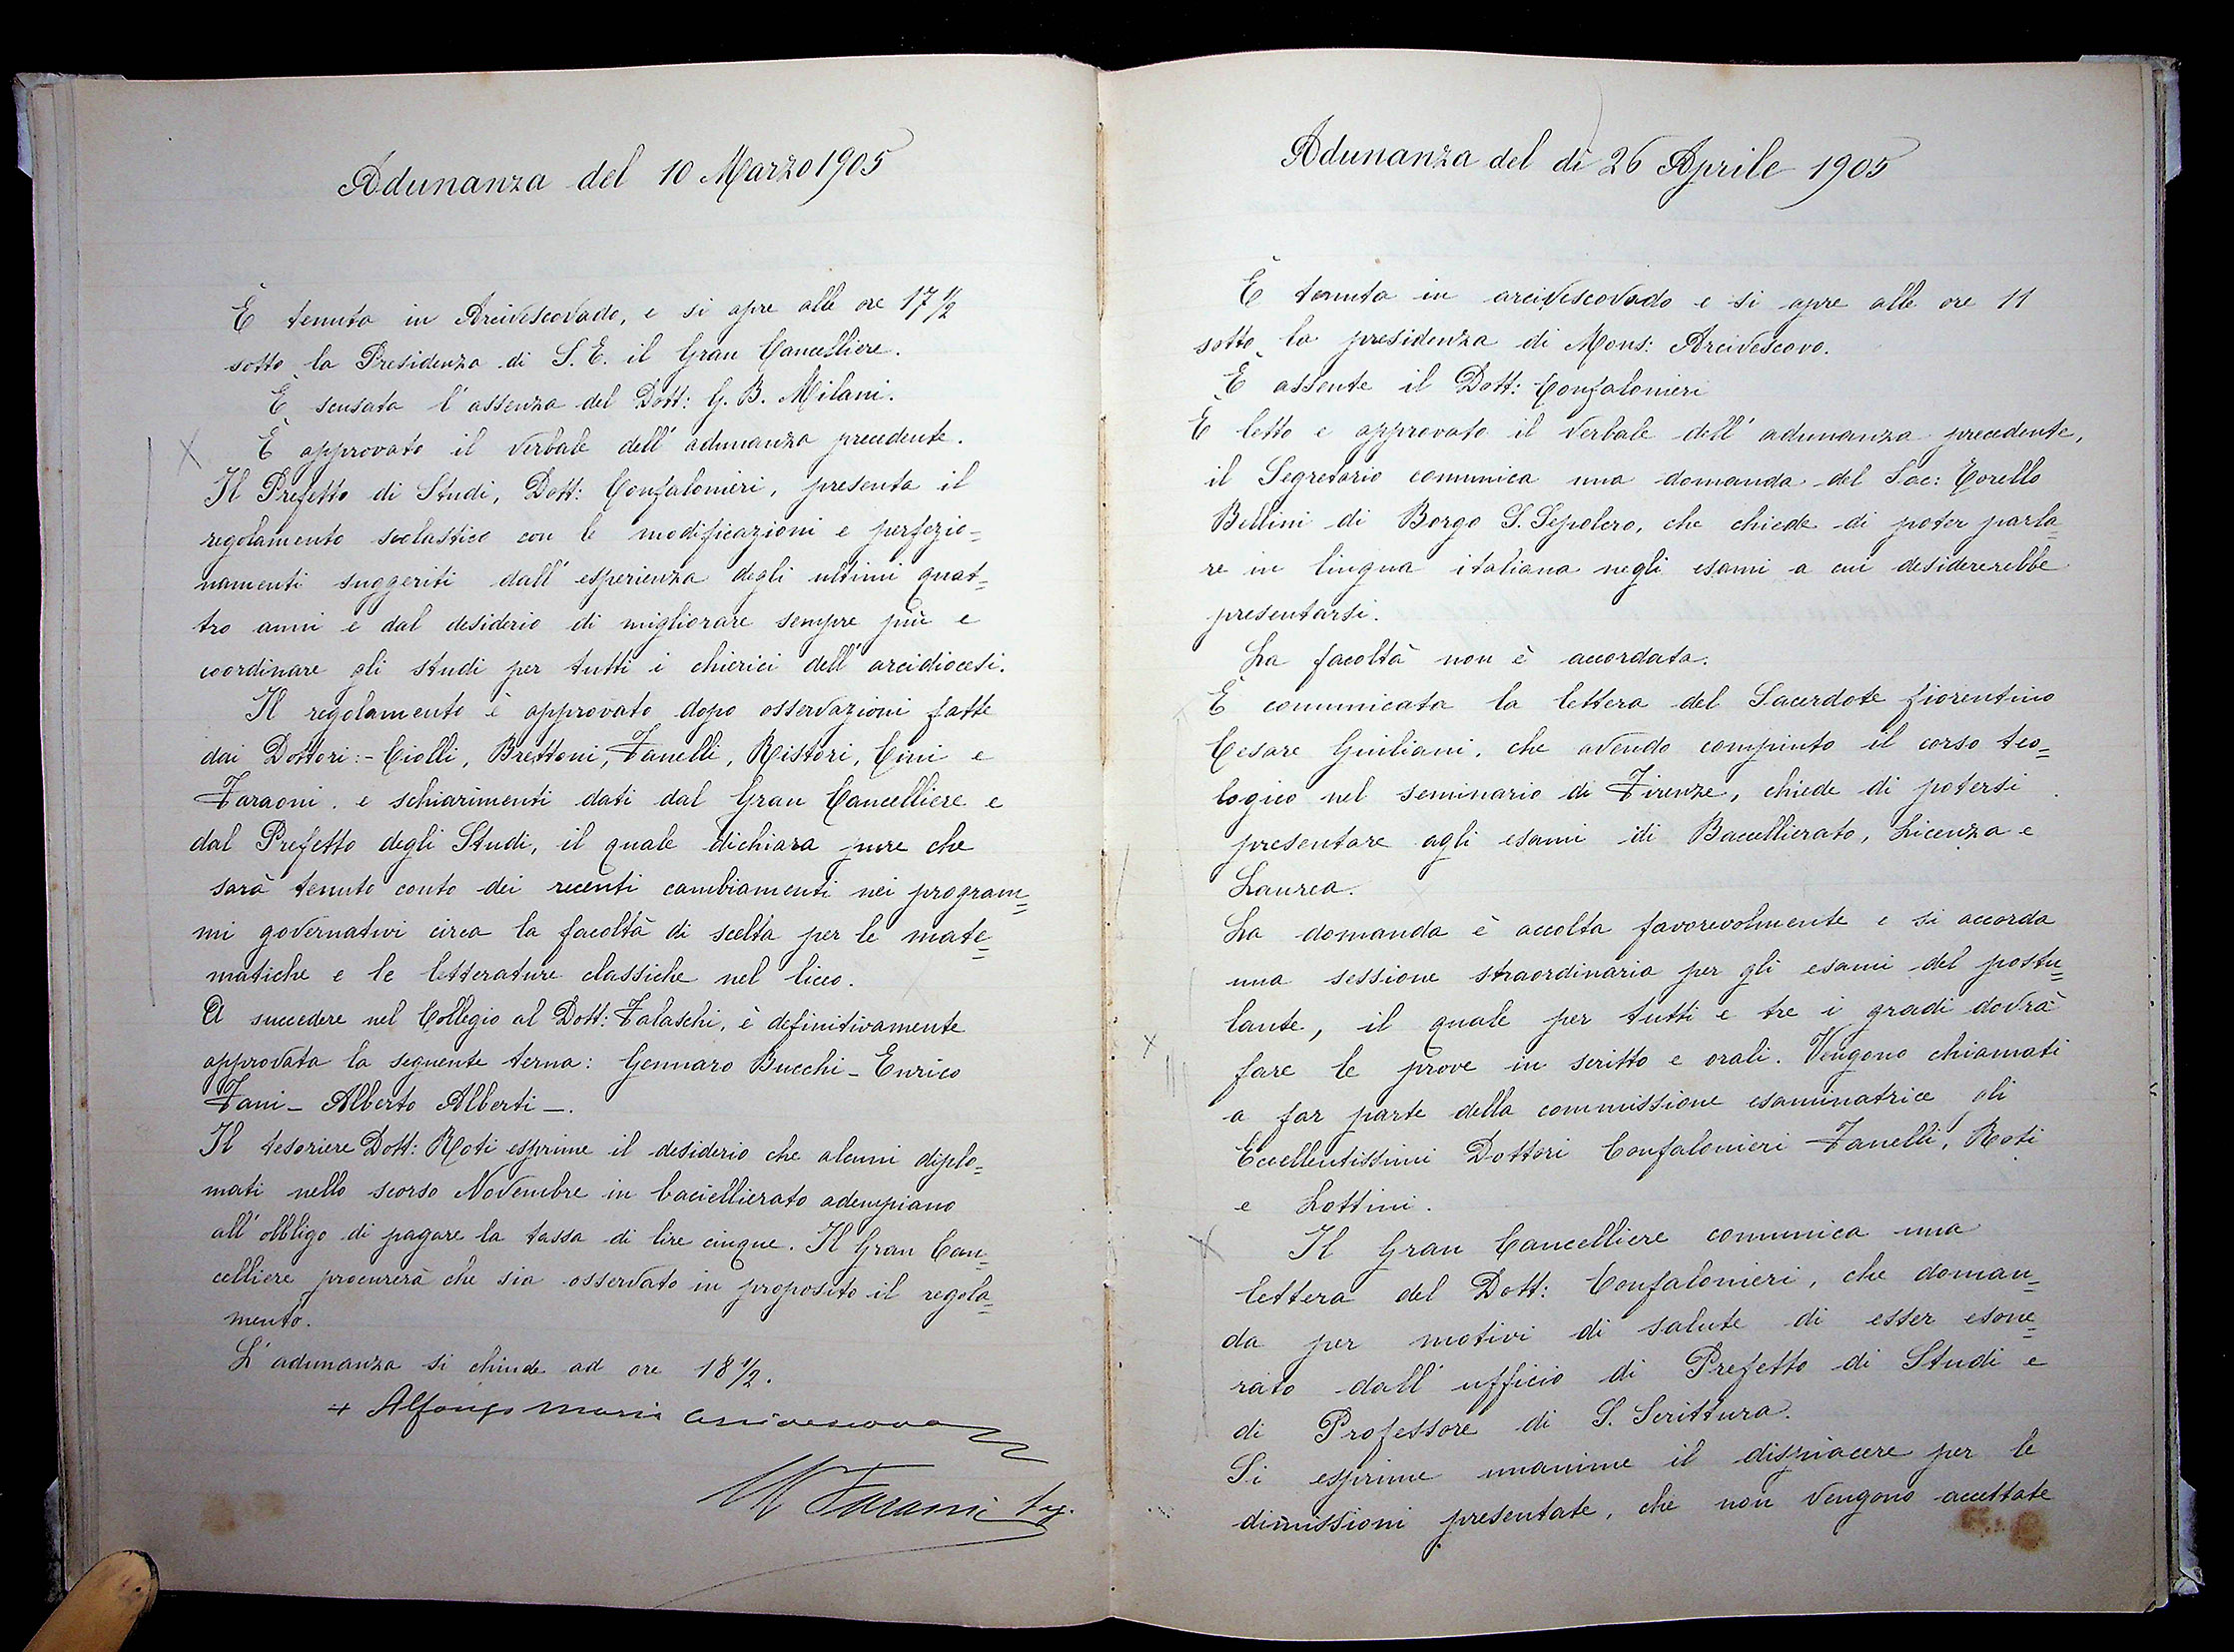 Adunanza del 10 Marzo 1905
È tenuta in Arcivescovado, e si apre alle ore 17 1/2
sotto la Presidenza di S. E. il Gran Cancelliere.
È scusata l'assenza del Dott: G. B. Milani.
È approvato il verbale dell'adunanza precedente.
Il Prefetto di Studi, Dott: Confalonieri, presenta il
regolamento scolastico con le modificazioni e perfezio=
namenti suggeriti dall'esperienza degli ultimi quat=
tro anni e dal desiderio di migliorare sempre più e
coordinare gli studi per tutti i chierici dell'arcidiocesi.
Il regolamento è approvato dopo osservazioni fatte
dai Dottori:- Ciolli, Brettoni, Fanelli, Ristori, Cini e
Faraoni. e schiarimenti dati dal Gran Cancelliere e
dal Prefetto degli Studi, il quale dichiara pure che
sarà tenuto conto dei recenti cambiamenti nei program=
mi governativi circa la facoltà di scelta per le mate=
matiche e le letterature classiche nel liceo.
A succedere nel Collegio al Dott: Falaschi, è definitivamente
approvata la seguente terna: Gennaro Bucchi - Enrico
Fani - Alberto Alberti -.
Il tesoriere Dott: Roti esprime il desiderio che alcuni diplo=
mati nello scorso Novembre in baccellierato adempiano
all'obbligo di pagare la tassa di lire cinque. Il Gran Can=
celliere procurerà che sia osservato in proposito il regola=
mento.
L'adunanza si chiude ad ore 18 1/2.
+ Alfonso Maria Arcivescovo
Faraoni Seg.
Adunanza del dì 26 Aprile 1905
È tenuta in arcivescovado e si apre alle ore 11
sotto la presidenza di Mons: Arcivescovo.
È assente il Dott: Confalonieri
È letto e approvato il verbale dell'adunanza precedente,
il Segretario comunica una domanda del Sac: Corello
Bellini di Borgo S. Sepolcro, che chiede di poter parla=
re in lingua italiana negli esami a cui desidererebbe
presentarsi.
La facoltà non è accordata.
È comunicata la lettera del Sacerdote fiorentino
Cesare Giuliani, che avendo compiuto il corso teo=
logico nel seminario di Firenze, chiede di potersi
presentare agli esami di Baccellierato, Licenza e
Laurea.
La domanda è accolta favorevolmente e si accorda
una sessione straordinaria per gli esami del postu=
lante, il quale per tutti e tre i gradi dovrà
fare le prove in scritto e orali. Vengono chiamati
a far parte della commissione esaminatrice gli
Eccellentissimi Dottori Confalonieri Fanelli, Roti
e Lottini.
Il Gran Cancelliere comunica una
lettera del Dott: Confalonieri, che doman=
da per motivi di salute di esser esone=
rato dall'ufficio di Prefetto di Studi e
di Professore di S. Scrittura.
Si esprime unanime il dispiacere per le
dimissioni presentate, che non vengono accettate